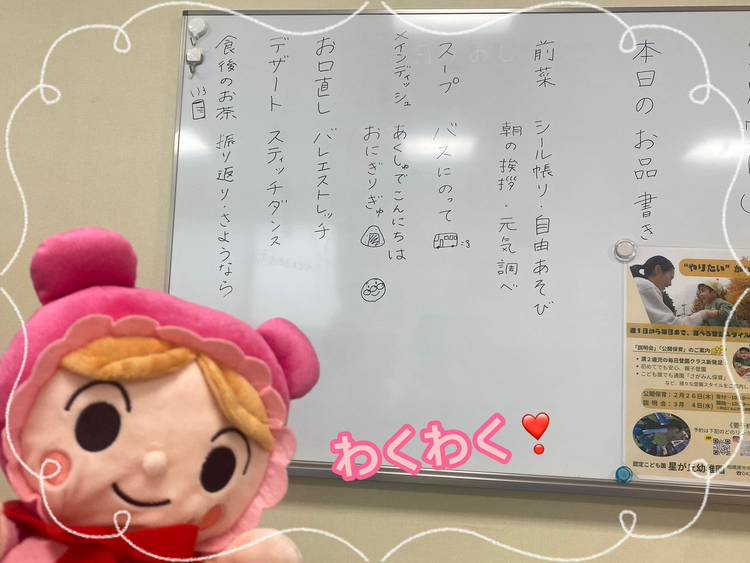 本日のお品書き
前菜 シール帳り・自由あそび
朝の挨拶・元気調べ
スープ バスにのって
メインディッシュ あくしゅでこんにちは
おにぎりぎゅ
お口直し バレエストレッチ
デザート スティッチダンス
食後のお茶 振り返り・さようなら
"やりたい"が
週1日から毎日まで、選べる登園スタイル
「説明会」「公開保育」のご案内
•満2歳児の毎日登園クラス新発足
•初めてでも安心、親子登園
•こども園でも通園「さがみん保育」
など、様々な登園スタイルをご案内
公開保育:2月26日(木)
説明会:3月 4日(水)
予約は下記のどのリン
認定こども園 星が丘幼稚園
わくわく❣